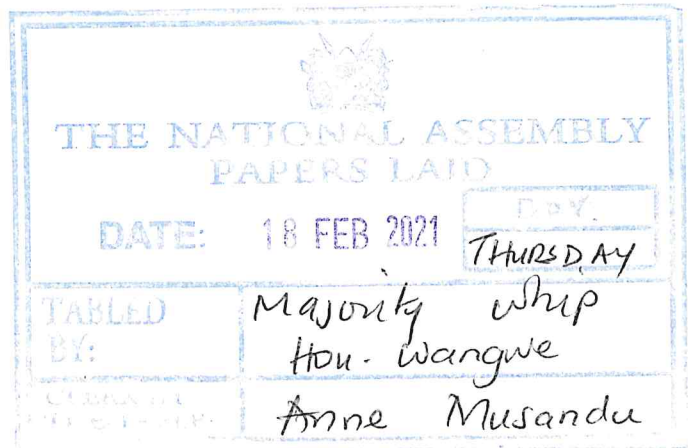 THE NATIONAL ASSEMBLY
PAPERS LAID
DATE: 18 FEB 2021
DAY.
THURSDAY
TABLED
BY:
Majority whip
Hon. Wangwe
CLERK AT
THE TABLE:
Anne Musandu